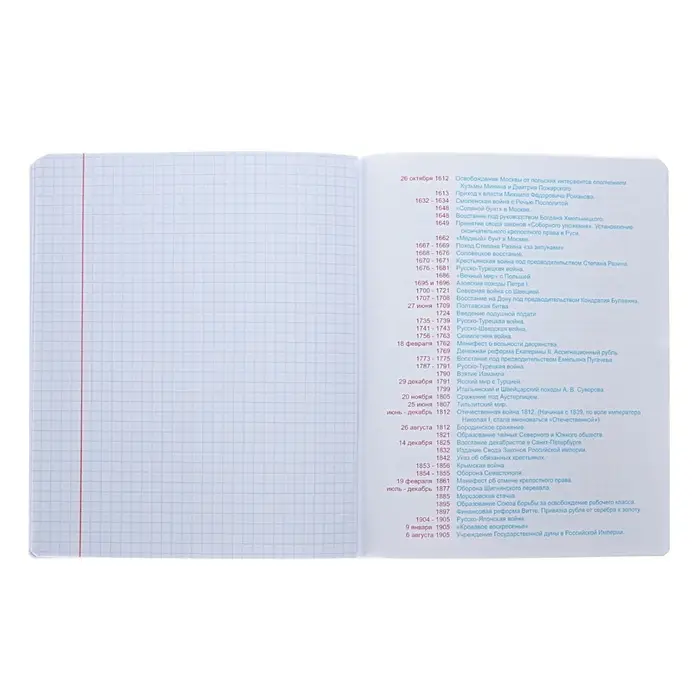 26 октября 1612 Освобождение Москвы от польских интервентов ополчением
Кузьмы Минина и Дмитрия Пожарского.
1613 Приход к власти Михаила Фёдоровича Романова.
1632 - 1634 Смоленская война с Речью Посполитой
1648 «Соляной бунт» в Москве.
1648 Восстание под руководством Богдана Хмельницкого.
1649 Принятие свода законов «Соборного уложения». Установление
окончательного крепостного права в Руси.
1662 «Медный» бунт в Москве.
1667 - 1669 Поход Степана Разина «за зипунами»
1668 - 1676 Соловецкое восстание.
1670 - 1671 Крестьянская война под предводительством Степана Разина.
1676 - 1681 Русско-Турецкая война.
1686 «Вечный мир» с Польшей.
1695 и 1696 Азовские походы Петра I.
1700 - 1721 Северная война со Швецией.
1707 - 1708 Восстание на Дону под предводительством Кондратия Булавина.
27 июня 1709 Полтавская битва.
1724 Введение подушной подати.
1735 - 1739 Русско-Турецкая война.
1741 - 1743 Русско-Шведская война.
1756 - 1763 Семилетняя война.
18 февраля 1762 Манифест о вольности дворянства.
1769 Денежная реформа Екатерины II. Ассигнационный рубль.
1773 - 1775 Восстание под предводительством Емельяна Пугачева.
1787 - 1791 Русско-Турецкая война.
1790 Взятие Измаила.
29 декабря 1791 Ясский мир с Турцией.
1799 Итальянский и Швейцарский походы А. В. Суворова.
20 ноября 1805 Сражение под Аустерлицем.
25 июня 1807 Тильзитский мир.
июнь - декабрь 1812 Отечественная война 1812. (Начиная с 1839, по воле императора
Николая I, стала именоваться «Отечественной»)
26 августа 1812 Бородинское сражение.
1821 Образование тайных Северного и Южного обществ.
14 декабря 1825 Восстание декабристов в Санкт-Петербурге.
1832 Издание Свода Законов Российской империи.
1842 Указ об обязанных крестьянах.
1853 - 1856 Крымская война.
1854 - 1855 Оборона Севастополя.
19 февраля 1861 Манифест об отмене крепостного права.
июль - декабрь 1877 Оборона Шипкинского перевала.
1885 Морозовская стачка.
1895 Образование Союза борьбы за освобождение рабочего класса.
1897 Финансовая реформа Витте. Привязка рубля от серебра к золоту.
1904 - 1905 Русско-Японская война.
9 января 1905 «Кровавое воскресенье»
6 августа 1905 Учреждение Государственной думы в Российской Империи.